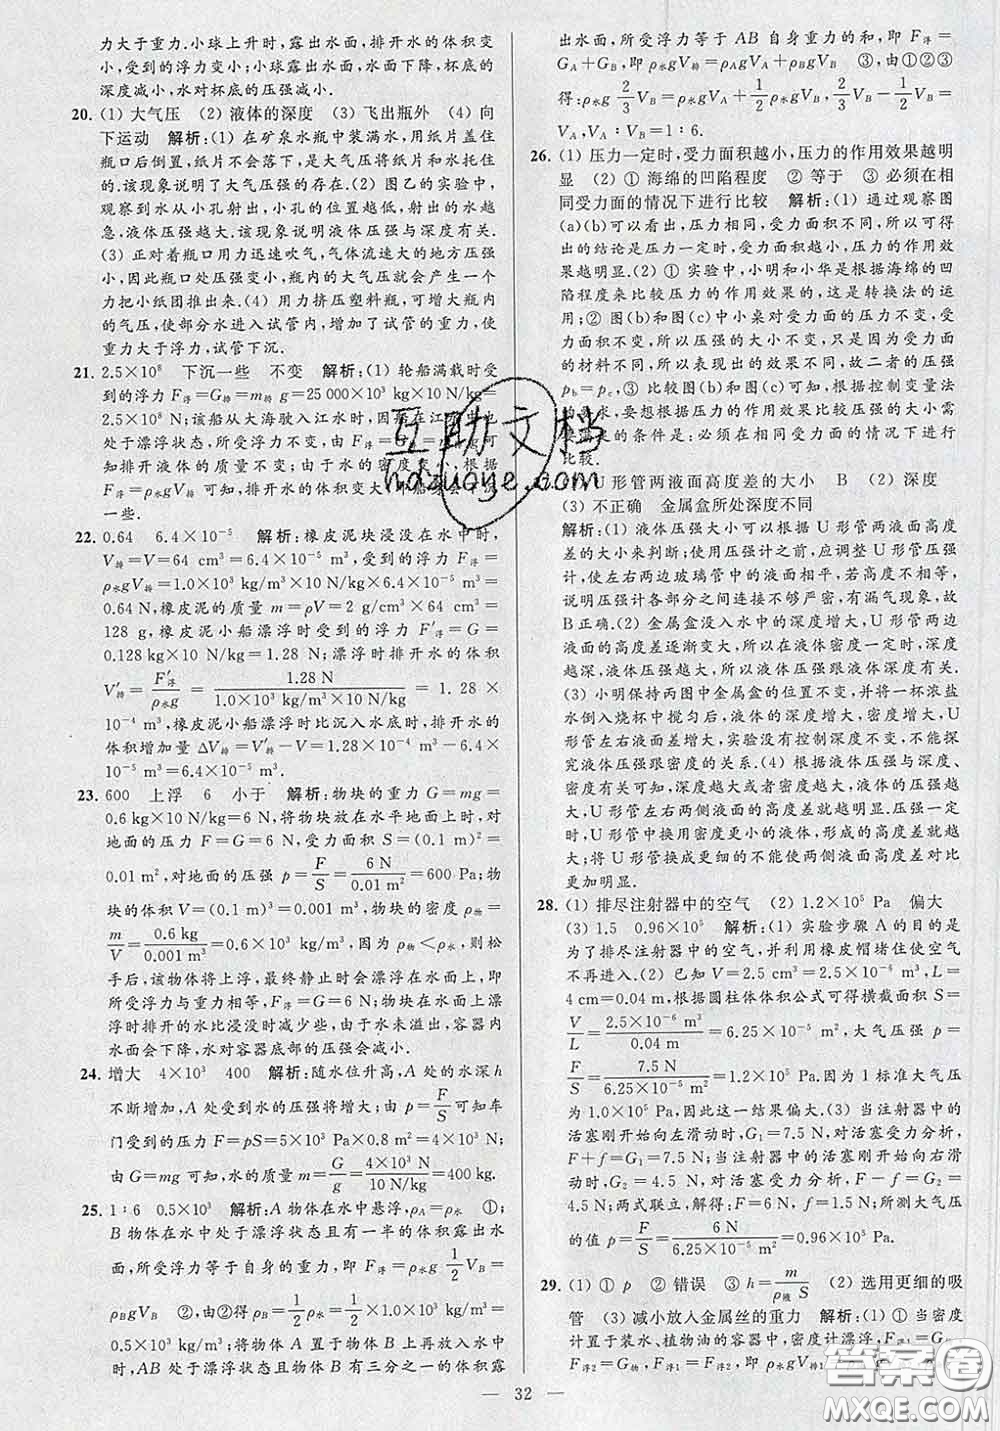 力大于重力.小球上升时,露出水面,排开水的体积变
小,受到的浮力变小;小球露出水面,水面下降,杯底的
深度减小,水对杯底的压强减小.
20. (1) 大气压 (2) 液体的深度 (3) 飞出瓶外 (4) 向
下运动 解析:(1) 在矿泉水瓶中装满水,用纸片盖住
瓶口后倒置,纸片不会落下,是大气压将纸片和水托住
的.该现象说明了大气压强的存在.(2) 图乙的实验中,
观察到水从小孔射出,小孔的位置越低,射出的水越
急,液体压强越大.该现象说明液体压强与深度有关.
(3) 正对着瓶口用力迅速吹气,气体流速大的地方压强
小,因此瓶口处压强变小,瓶内的大气压就会产生一个
力把小纸团推出来.(4) 用力挤压塑料瓶,可增大瓶内
的气压,使部分水进入试管内,增加了试管的重力,使
重力大于浮力,试管下沉.
21. 2.5×10⁸ 下沉一些 不变 解析:(1) 轮船满载时受
到的浮力 F浮=G排=m排g=25 000×10³ kg×10 N/kg=
2.5×10⁸ N;该船从大海驶入江水时,因船在江河中也
处于漂浮状态,所受浮力不变;由 F浮=G排=m排g 可
知排开液体的质量不变;由于水的密度变小,根据
F浮=ρ水gV排 可知,排开水的体积变大,即船会下沉
一些.
22. 0.64 6.4×10⁻⁵ 解析:橡皮泥块浸没在水中时,
V排=V=64 cm³=6.4×10⁻⁵ m³,受到的浮力 F浮=
ρ水gV排=1.0×10³ kg/m³×10 N/kg×6.4×10⁻⁵ m³=
0.64 N,橡皮泥的质量 m=ρV=2 g/cm³×64 cm³=
128 g,橡皮泥小船漂浮时受到的浮力 F′浮=G=
0.128 kg×10 N/kg=1.28 N;漂浮时排开水的体积
V′排=F′浮/ρ水g=1.28 N/1.0×10³ kg/m³×10 N/kg=1.28×
10⁻⁴ m³,橡皮泥小船漂浮时比沉入水底时,排开水的
体积增加量 ΔV排=V′排−V=1.28×10⁻⁴ m³−6.4×
10⁻⁵ m³=6.4×10⁻⁵ m³.
23. 600 上浮 6 小于 解析:物块的重力 G=mg=
0.6 kg×10 N/kg=6 N,将物块放在水平地面上时,对
地面的压力 F=G=6 N,受力面积 S=(0.1 m)²=
0.01 m²,对地面的压强 p=F/S=6 N/0.01 m²=600 Pa;物
块的体积 V=(0.1 m)³=0.001 m³,物块的密度 ρ物=
m/V=0.6 kg/0.001 m³=0.6×10³ kg/m³,因为 ρ物<ρ水,所以松
手后,该物体将上浮,最终静止时会漂浮在水面上,即
所受浮力与重力相等,F浮=G=6 N;物块在水面上漂
浮时排开的水比浸没时减少些,由于水未溢出,容器内
水面会下降,水对容器底部的压强会减小.
24. 增大 4×10³ 400 解析:随水位升高,A 处的水深 h
不断增大,A 处受到水的压强将增大;由 p=F/S 可知车
门受到的压力 F=pS=5×10³ Pa×0.8 m²=4×10³ N;
由 G=mg 可知,水的质量 m=G/g=4×10³ N/10 N/kg=400 kg.
25. 1∶6 0.5×10³ 解析:A 物体在水中悬浮,ρA=ρ水 ①;
B 物体在水中处于漂浮状态且有一半的体积露出水
面,所受浮力等于自身的重力,即 ρ水g 1/2 VB=
ρBgVB ②,由②得 ρB=1/2ρ水=1/2×1.0×10³ kg/m³=
0.5×10³ kg/m³;将物体 A 置于物体 B 上再放入水中
时,AB 处于漂浮状态且物体 B 有三分之一的体积露
出水面,所受浮力等于 AB 自身重力的和,即 F浮=
GA+GB,即 ρ水g 2/3 VB=ρAgVA+ρBgVB ③,由①②③
得:ρ水g 2/3 VB=ρ水gVA+1/2ρ水gVB,2/3VB−1/2VB=
VA,VA∶VB=1∶6.
26. (1) 压力一定时,受力面积越小,压力的作用效果越明
显 (2) ① 海绵的凹陷程度 ② 等于 ③ 必须在相
同受力面的情况下进行比较 解析:(1) 通过观察图
(a)(b)可以看出,压力大小相同,受力面积不同,所以可得
出的结论是压力一定时,受力面积越小,压力的作用效
果越明显.(2) ① 实验中,小明和小华是根据海绵的凹
陷程度来比较压力的作用效果的,这是转换法的运
用;② 图(b)和图(c)中小桌对受力面的压力大小不
变,受力面积的大小不变,压强的大小不变,只是受力面
的材料不同,所以表现出的效果不同,故二者的压强
pb=pc;③ 比较图(c)和图(d),根据控制变量法的
要求,要想根据压力的作用效果比较压强的大小需要
满足的条件是:必须在相同受力面的情况下进行
比较.
U 形管两液面高度差的大小 B (2) 深度
(3) 不正确 金属盒所处深度不同
解析:(1) 液体压强大小可以根据 U 形管两液面高度
差的大小来判断;使用压强计之前,应调整 U 形管压强
计,使左右两边玻璃管中的液面相平,若高度不相等,
说明压强计各部分之间连接不够严密,有漏气现象,故
B 正确.(2) 金属盒没入水中的深度增大,U 形管两边
液面的高度差逐渐变大,所以液体密度一定时,深度
越深,液体压强越大,所以液体压强跟液体深度有关.
(3) 小明保持两图中金属盒的位置不变,并将一杯浓盐
水倒入烧杯中搅匀后,液体的深度增大,密度增大,U
形管左右液面差增大,实验没有控制深度不变,不能探
究液体压强跟密度的关系.(4) 液体压强与深度、
密度有关,根据实验可知,深度越大或者密度越大,液
体压强越大,U 形管左右两侧液面的高度差就越大;
U 形管中采用密度更小的液体,形成的高度差就越
大;将 U 形管换成更细的不能使两液面高度差变化
更加明显.
28. (1) 排尽注射器中的空气 (2) 1.2×10⁵ Pa 偏大
(3) 1.5 0.96×10⁵ 解析:(1) 实验步骤 A 的目的是
为了排尽注射器中的空气,并利用橡皮帽堵住使空气
不再进入.(2) 已知 V=2.5 cm³=2.5×10⁻⁶ m³,L=
4 cm=0.04 m,根据圆柱体体积公式可得横截面积 S=
V/L=2.5×10⁻⁶ m³/0.04 m=6.25×10⁻⁵ m²,大气压强 p=
F/S=7.5 N/6.25×10⁻⁵ m²=1.2×10⁵ Pa.因为 1 标准大气压
为 1.0×10⁵ Pa,因此这一结果偏大.(3) 当注射器中的
活塞刚开始向左滑动时,G₁=7.5 N,对活塞受力分析,
F+f=G₁=7.5 N;当注射器中的活塞刚开始向右滑
动时,G₂=4.5 N,对活塞受力分析,F−f=G₂=
4.5 N;两式联立,解得:F=6 N,f=1.5 N,所测大气压
的值 p=F/S=6 N/6.25×10⁻⁵ m²=0.96×10⁵ Pa.
29. (1) ① p ② 错误 ③ h=m/ρ液S (2) 选用更细的吸
管 (3) 减小放入金属丝的重力 解析:(1) ① 当密度
计置于装水、植物油的容器中,密度计漂浮,F浮1=G物,
F浮2=G物,F浮1=F浮2,即 ρ水gV排1
— 32 —
互助文档
hdzuoye.com
答案圈
MXQE.COM